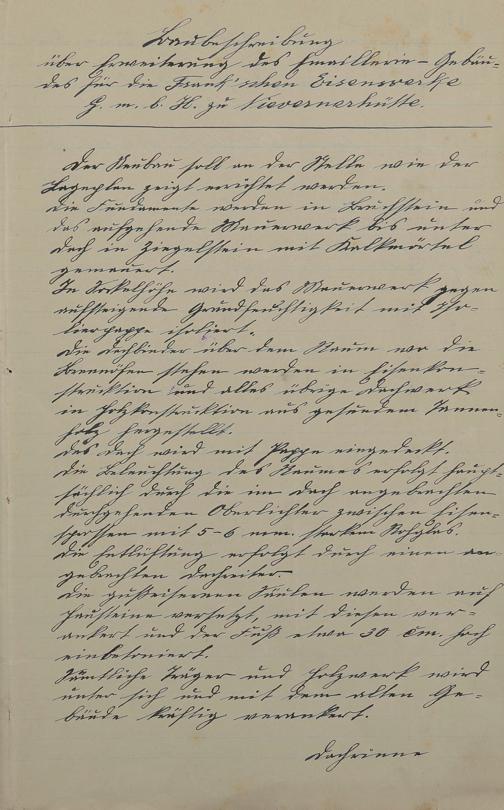 Baubeschreibung
über Erweiterung des Emaillerie-Gebäu-
des für die Frank'schen Eisenwerke
G. m. b. H. zu Nievernerhütte.
Der Neubau soll an der Stelle wie der
Lageplan zeigt errichtet werden.
Die Fundamente werden in Bruchstein und
das aufgehende Mauerwerk bis unter
Dach in Ziegelstein mit Kalkmörtel
gemauert.
In Sockelhöhe wird das Mauerwerk gegen
aufsteigende Grundfeuchtigkeit mit Iso-
lierpappe isoliert.
Die Dachbinder über dem Raum wo die
Brennöfen stehen werden in Eisenkon-
struktion und alles übrige Dachwerk
in Holzkonstruktion aus gesundem Tannen-
holz hergestellt.
Das Dach wird mit Pappe eingedeckt.
Die Beleuchtung des Raumes erfolgt haupt-
sächlich durch die im Dach angebrachten
durchgehenden Oberlichter zwischen Eisen-
sprossen mit 5-6 mm. starkem Rohglas.
Die Entlüftung erfolgt durch einen an-
gebrachten Dachreiter.
Die gußeisernen Säulen werden auf
Hausteine versetzt, mit diesen ver-
ankert und der Fuß etwa 30 cm. hoch
einbetoniert.
Sämtliche Träger und Holzwerk wird
unter sich und mit dem alten Ge-
bäude kräftig verankert.
Dachrinne